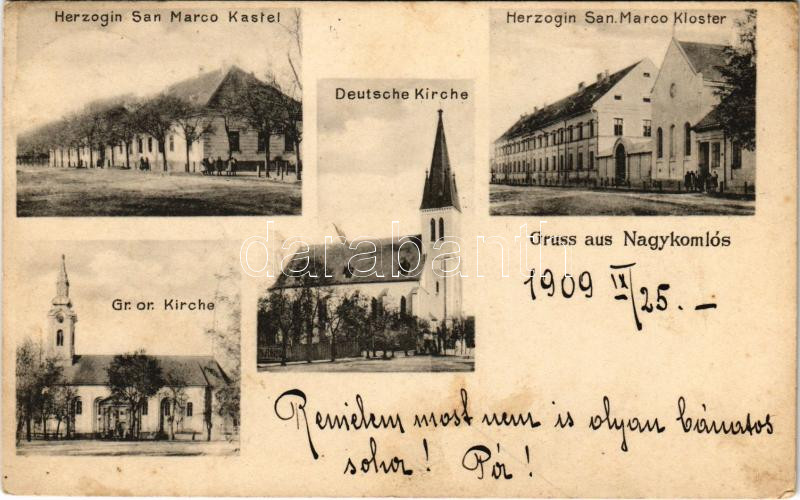 Herzogin San Marco Kastel
Herzogin San. Marco Kloster
Deutsche Kirche
Gr. or. Kirche
Gruss aus Nagykomlós
1909 IX/25. –
Remélem most nem is olyan bánatos
soha! Pá!
darabanth.com